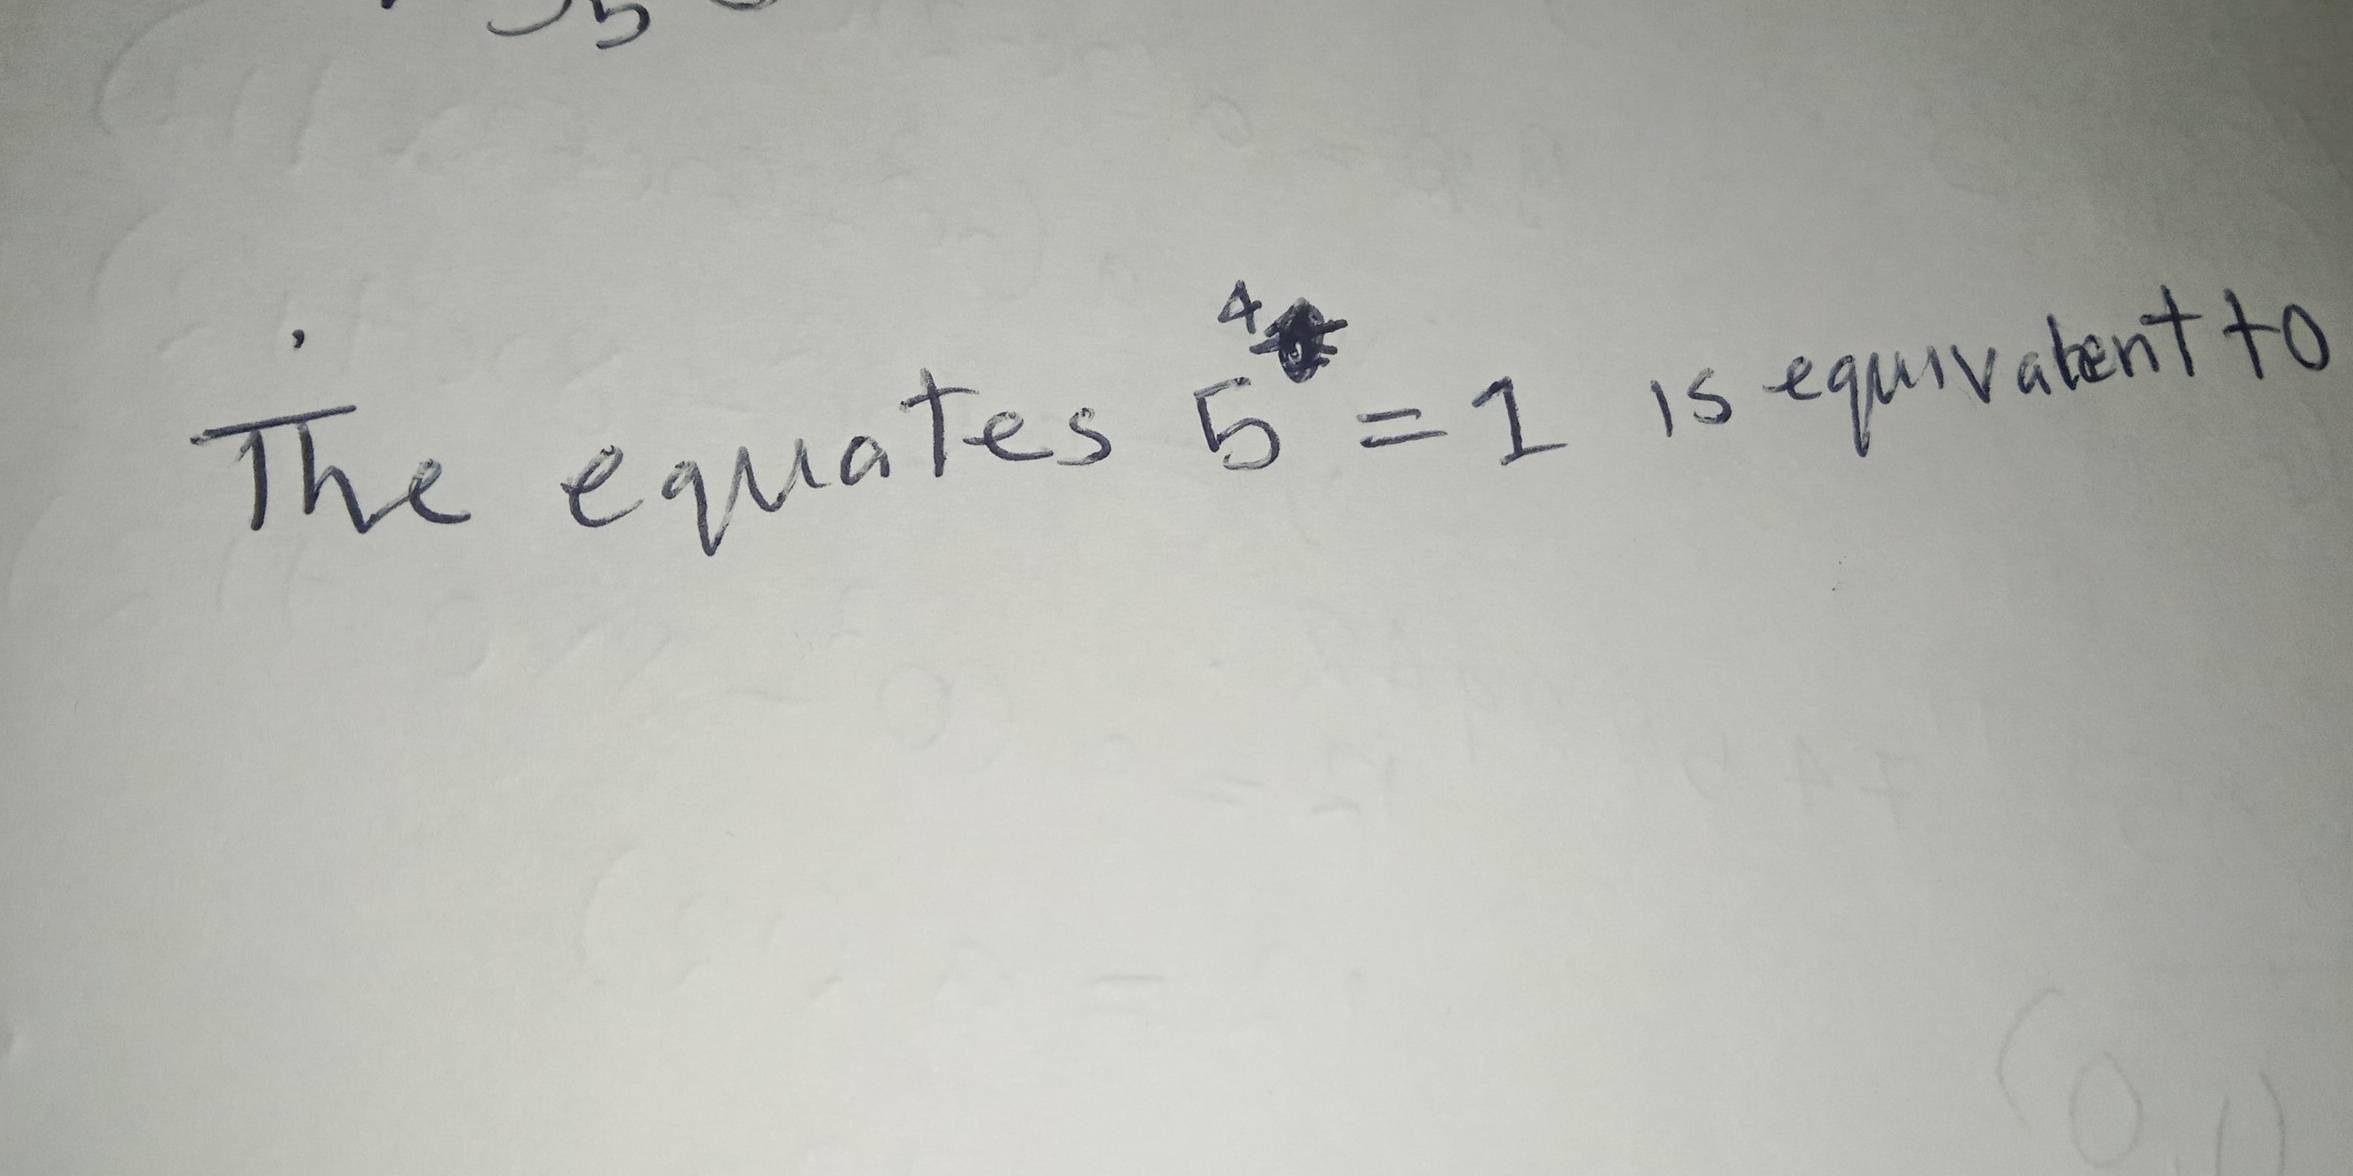 The equates 5⁴ = 1 is equivalent to